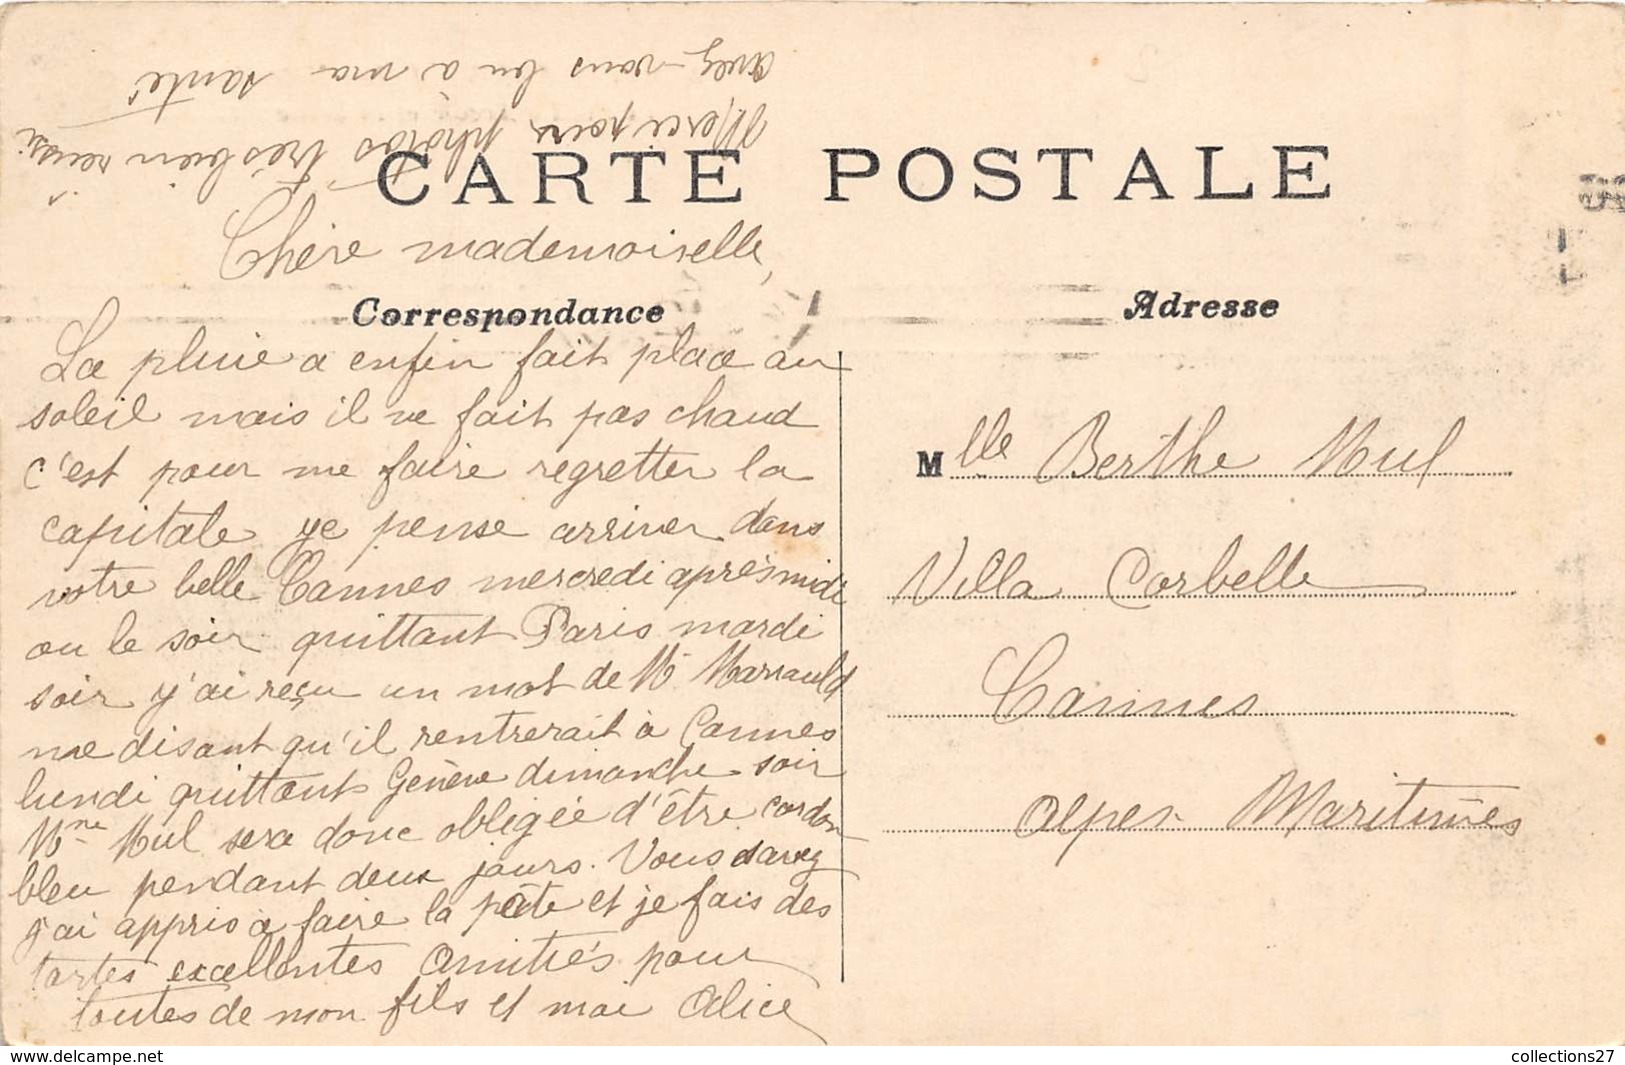 Merci pour photos très bien réussi
avez-vous bu à ma santé
CARTE POSTALE
Chère mademoiselle,
Correspondance
La pluie a enfin fait place au
soleil mais il ne fait pas chaud
c'est pour me faire regretter la
capitale je pense arriver dans
votre belle Cannes mercredi après midi
ou le soir quittant Paris mardi
soir j'ai reçu un mot de Mr Marrauld
me disant qu'il rentrerait à Cannes
lundi quittant Genève dimanche soir
Mme Mul sera donc obligée d'être cordon
bleu pendant deux jours. Vous savez
j'ai appris à faire la pâte et je fais des
tartes excellentes Amitiés pour
toutes de mon fils et moi Alice
Adresse
Mlle Berthe Mul
Villa Corbelle
Cannes
Alpes Maritimes
collections27